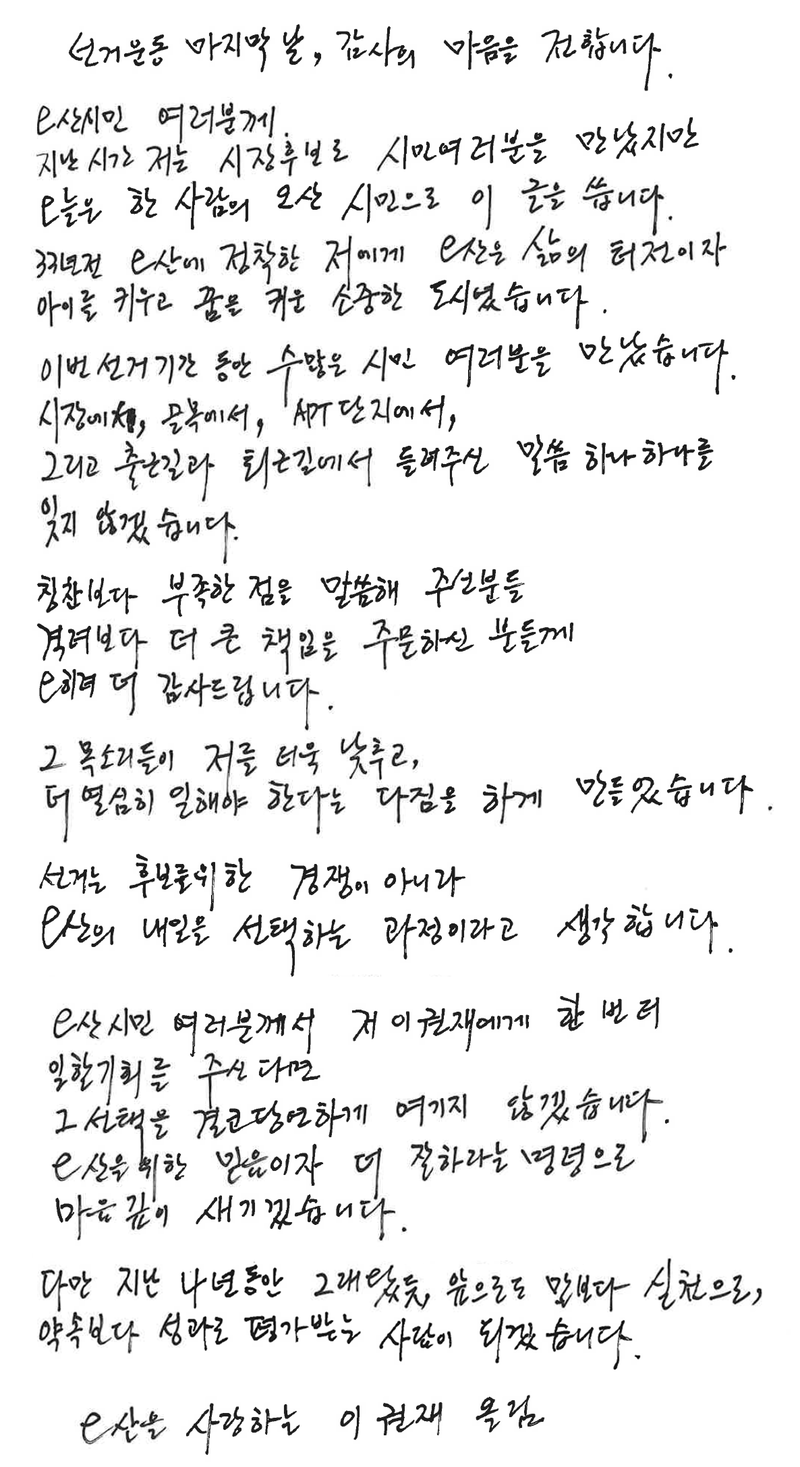 선거운동 마지막 날, 감사의 마음을 전합니다.
오산시민 여러분께.
지난 시간 저는 시장후보로 시민여러분을 만났지만
오늘은 한 사람의 오산 시민으로 이 글을 씁니다.
33년전 오산에 정착한 저에게 오산은 삶의 터전이자
아이를 키우고 꿈을 키운 소중한 도시였습니다.
이번 선거기간 동안 수많은 시민 여러분을 만났습니다.
시장에서, 골목에서, APT단지에서,
그리고 출근길과 퇴근길에서 들려주신 말씀 하나하나를
잊지 않겠습니다.
칭찬보다 부족한 점을 말씀해 주신분들
격려보다 더 큰 책임을 주문하신 분들께
오히려 더 감사드립니다.
그 목소리들이 저를 더욱 낮추고,
더 열심히 일해야 한다는 다짐을 하게 만들었습니다.
선거는 후보를위한 경쟁이 아니라
오산의 내일을 선택하는 과정이라고 생각합니다.
오산시민 여러분께서 저 이권재에게 한 번 더
일할기회를 주신다면
그 선택을 결코당연하게 여기지 않겠습니다.
오산을위한 믿음이자 더 잘하라는 명령으로
마음깊이 새기겠습니다.
다만 지난 4년동안 그래왔듯, 앞으로도 말보다 실천으로,
약속보다 성과로 평가받는 사람이 되겠습니다.
오산을 사랑하는 이권재 올림